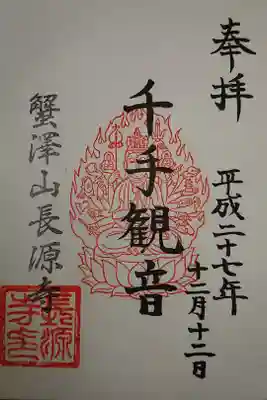 奉拝
平成二十七年
十二月十二日
千手観音
蟹澤山長源寺
長源
寺印